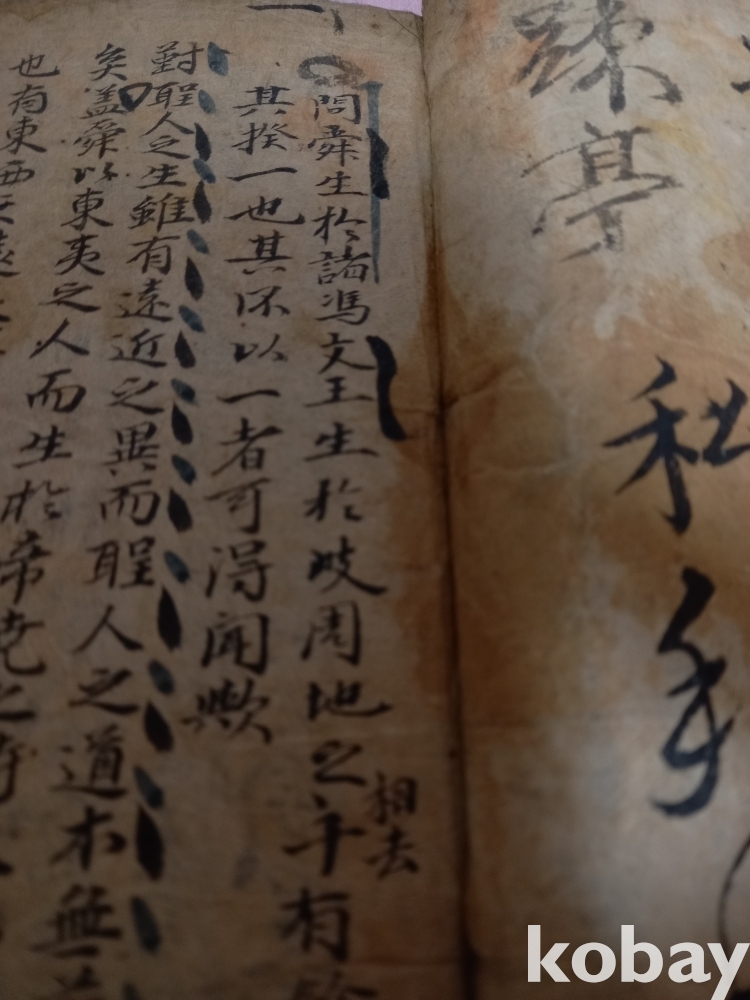 亭
手
一
問舜生於諸馮文王生於岐周地之千有
相去
其揆一也其所以一者可得聞歟
對聖人之生雖有遠近之異而聖人之道本無
矣盖舜以東夷之人而生於帝堯之時
也有東西
kobay